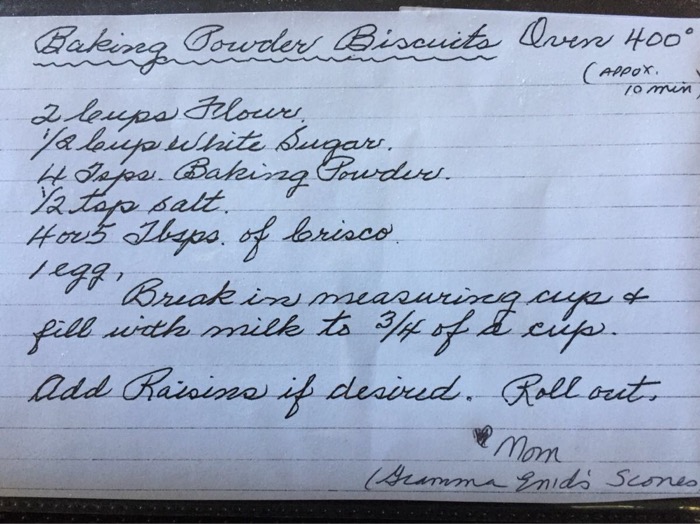 Baking Powder Biscuits Oven 400°
(Appox.
10 min)
2 Cups Flour.
1/2 Cup White Sugar.
4 Tsps. Baking Powder.
1/2 tsp salt.
4 or 5 Tbsps. of Crisco.
1 egg,
Break in measuring cup &
fill with milk to 3/4 of a cup.
Add Raisins if desired. Roll out.
Mom
(Gramma Enid's Scones